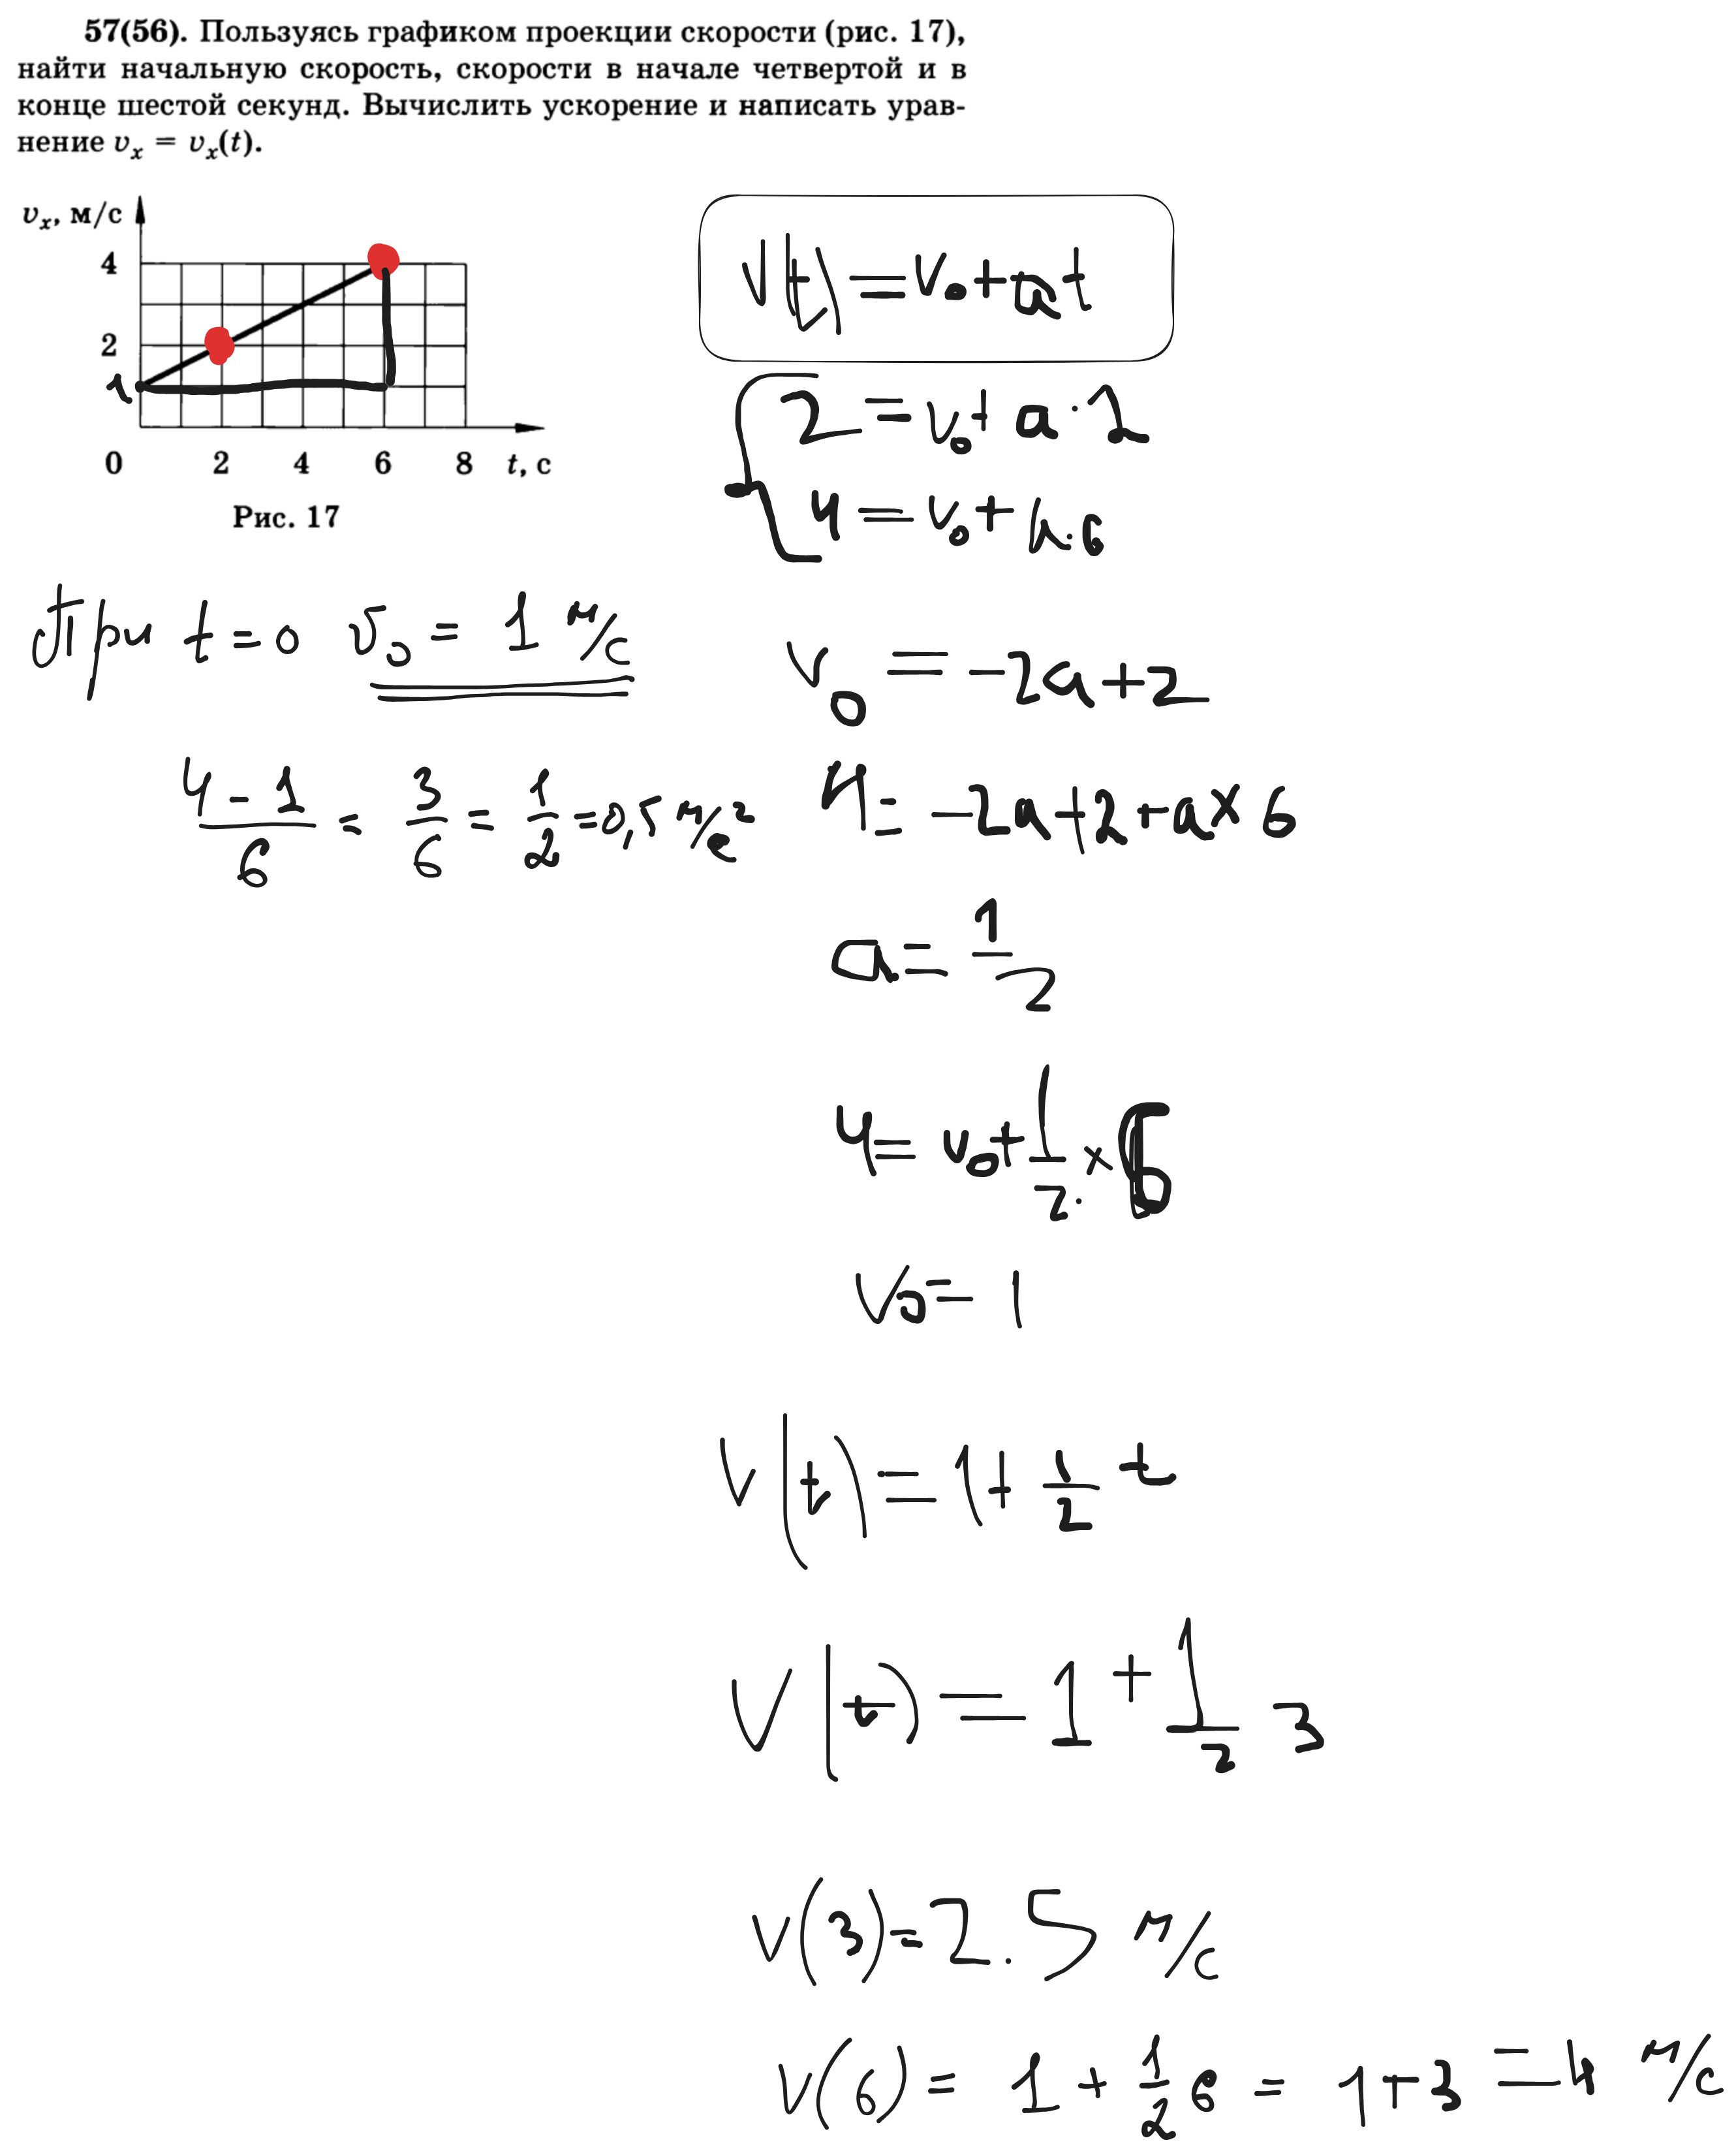 57(56). Пользуясь графиком проекции скорости (рис. 17),
найти начальную скорость, скорости в начале четвертой и в
конце шестой секунд. Вычислить ускорение и написать урав-
нение vₓ = vₓ(t).
vₓ, м/с
4
2
1
0 2 4 6 8 t, с
Рис. 17
При t = 0 v₀ = 1 м/с
(4 - 1)/6 = 3/6 = 1/2 = 0,5 м/с²
v(t) = v₀ + at
2 = v₀ + a · 2
4 = v₀ + a · 6
v₀ = -2a + 2
4 = -2a + 2 + a × 6
a = 1/2
4 = v₀ + 1/2 × 6
v₀ = 1
v(t) = 1 + 1/2 t
v(t) = 1 + 1/2 3
v(3) = 2.5 м/с
v(6) = 1 + 1/2 6 = 1 + 3 = 4 м/с